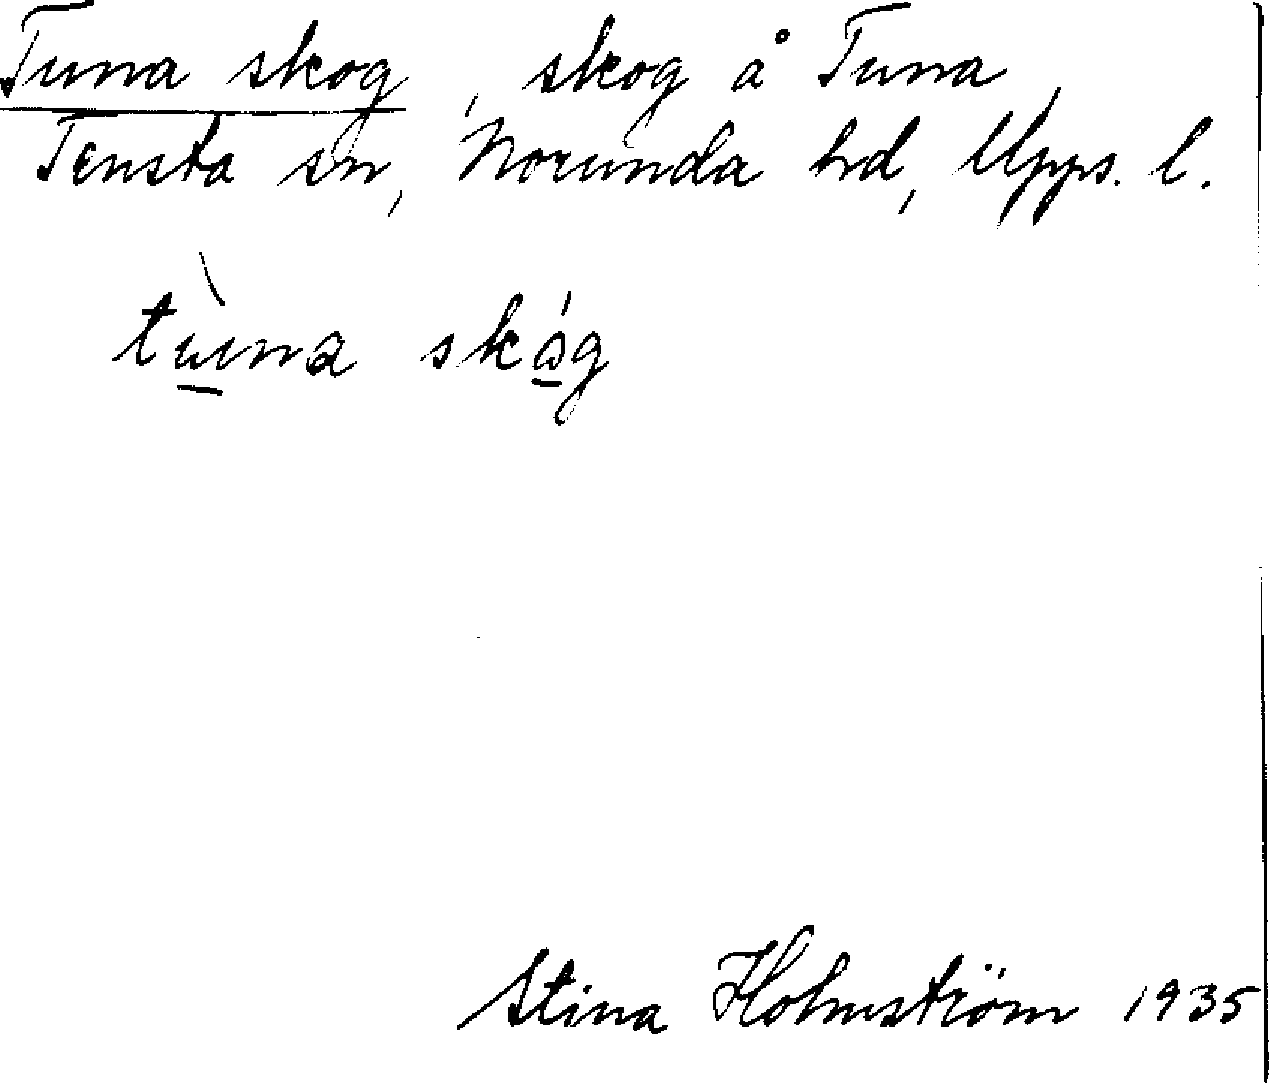 Tuna skog, skog å Tuna,
Tensta sn, Norunda hd, Upps. l.
tù̲na skó̲g
Stina Holmström 1935